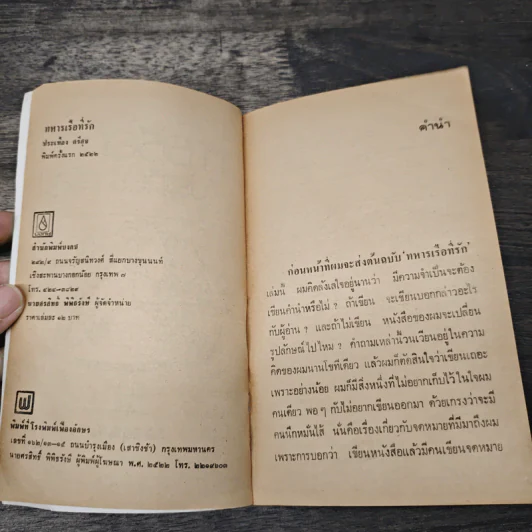 ทหารเรือที่รัก
ประเทือง ศรีสุข
พิมพ์ครั้งแรก ๒๕๒๒
สำนักพิมพ์บงกช
๒๔๒/๕ ถนนจรัญสนิทวงศ์ สี่แยกบางขุนนนท์
เชิงสะพานบางกอกน้อย กรุงเทพ ๗
โทร. ๔๒๔-๓๔๒๕
นายอรสิทธิ์ พิพิธรังษี ผู้จัดจำหน่าย
ราคาเล่มละ ๑๒ บาท
พิมพ์ที่ โรงพิมพ์เฟื่องอักษร
เลขที่ ๑๖๒/๑๓-๑๕ ถนนบำรุงเมือง (เสาชิงช้า) กรุงเทพมหานคร
นายศรสิทธิ์ พิพิธรังษี ผู้พิมพ์ผู้โฆษณา พ.ศ. ๒๕๒๒ โทร. ๒๒๑๙๖๐๓
คำนำ
ก่อนหน้าที่ผมจะส่งต้นฉบับ 'ทหารเรือที่รัก'
เล่มนี้ ผมคิดลังเลใจอยู่นานว่า มีความจำเป็นจะต้อง
เขียนคำนำหรือไม่ ? ถ้าเขียน จะเขียนบอกกล่าวอะไร
กับผู้อ่าน ? และถ้าไม่เขียน หนังสือของผมจะเปลี่ยน
รูปลักษณ์ไปไหม ? คำถามเหล่านี้วนเวียนอยู่ในความ
คิดของผมนานโขทีเดียว แล้วผมก็ตัดสินใจว่าเขียนเถอะ
เพราะอย่างน้อย ผมก็มีสิ่งหนึ่งที่ไม่อยากเก็บไว้ในใจผม
คนเดียว พอ ๆ กับไม่อยากเขียนออกมา ด้วยเกรงว่าจะมี
คนนึกหมั่นไส้ นั่นคือเรื่องเกี่ยวกับจดหมายที่มีมาถึงผม
เพราะการบอกว่า เขียนหนังสือแล้วมีคนเขียนจดหมาย